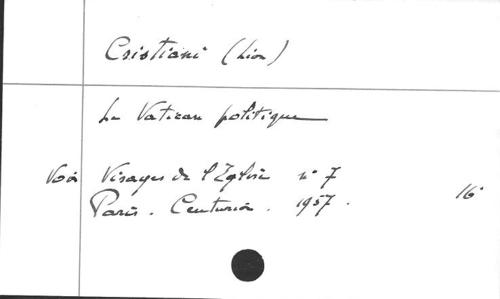 Cristiani (Léon)
Le Vatican politique
Voir Visages de l'Eglise n° 7
Paris. Centurion. 1957. 16°